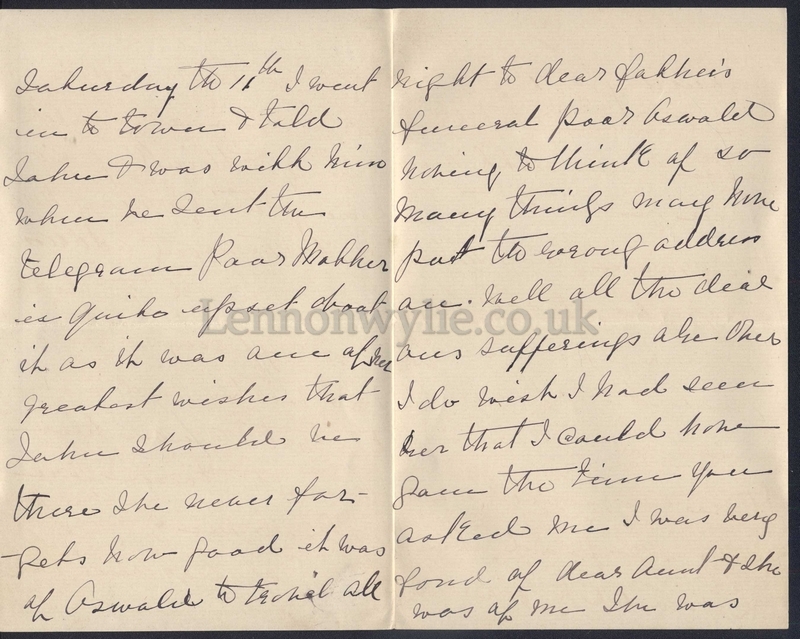 Saturday the 11th I went
in to town & told
John & was with him
when he sent the
telegram Poor Mother
is quite upset about
it as it was one of her
greatest wishes that
John should be
there She never for-
-gets how good it was
of Oswald to travel all
right to dear Father's
funeral poor Oswald
having to think of so
many things may have
put the wrong address
on. Well all the dear
ones sufferings are over
I do wish I had seen
her that I could have
gone the time you
asked me I was very
fond of dear Aunt & she
was of me She was
Lennonwylie.co.uk